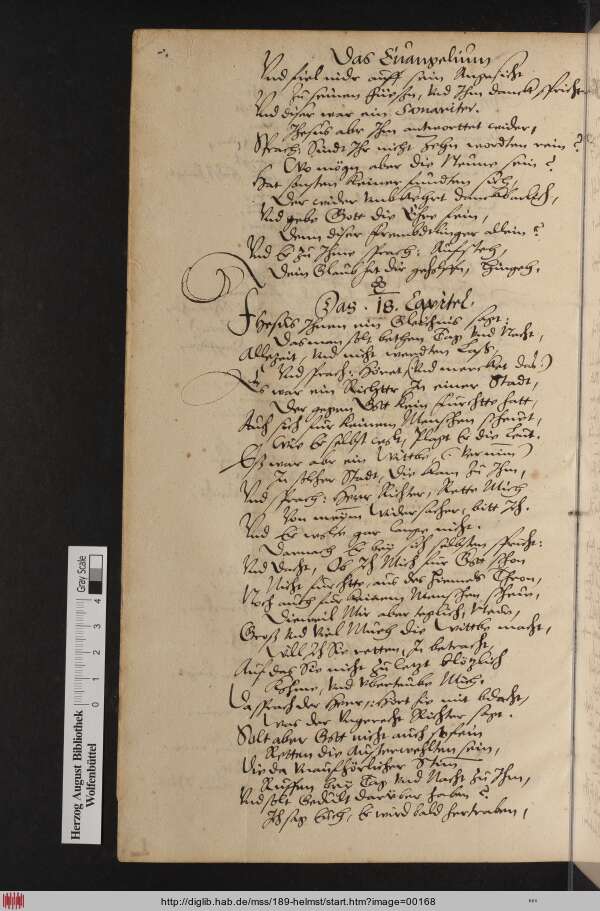 Das Euangelium
Vnd fiel nidr auff sein Angesicht
Zu seinen Füessen, Vnd Ihm danck spricht
Vnd diser war ein Samariter.
Jhesus abr Ihm antworttet wider,
Sprach, Sindt Ihr nicht Zehn wordten rein ?
Wo mögen aber die Neune sein ?
Hat sonsten Keiner fundten sich,
Der wider Vmb Kehrt danckbarlich,
Vnd gebe Gott die Ehre sein,
Denn diser frembdtlinger allein ?
Vnd Er Zu Ihme sprach: Aufsteh,
Dein Glaub hat dir geholffen, hingeh.
Das . 18. Capitel.
Jhesus Ihnen ein Gleichnis sagt:
Das man solt bethen Tag Vnd Nacht,
Allezeit, Vnd nicht werdten Laß,
Vnd sprach: Höret (Vnd mercket das:)
Es war ein Richtter In einer Stadt,
Der gegen Gott Kein furchtte hatt,
Auch sich für Keinem Menschen scheüt,
Wie Er selbst, Plagt Er die Leut.
Es war abr ein Wittbe, (Vernim)
In solcher Stadt, die Kam Zu Ihm,
Vnd sprach: Herr Richter, Rette Mich
Von meym Widersacher, bitt Ich.
Vnd Er wolte gar lange nicht.
Darnach Er beÿ sich selbsten spricht:
Vnd dacht, Ob Ich Mich für Gott schon
Nicht fürchtte, aus des Himmels Thron,
Noch auch für Keinem Menschen scheue,
Dieweil Mir aber teglich,
Groß Vnd Viel Mühe die Wittbe macht,
Will Ich Sie retten, In betracht,
Auf das Sie nicht Zu letzt plötzlich
Kohme, Vnd Vbertäube Mich.
Da sprach der Herr, Hört hie mit bdacht,
Was der Vngerecht Richter sagt.
Solt aber Gott nicht auch so fein
Retten die Ausserwehlten sein,
Die da Vnaufhörlicher Stim
Ruffen beÿ Tag Vnd Nacht Zu Ihm,
Vnd solt Gedult darüber haben ?
Ich sag Euch, Er wird bald hertraben,
Herzog August Bibliothek
Wolfenbüttel
0 1 2 3 4
Gray Scale
http://diglib.hab.de/mss/189-helmst/start.htm?image=00168